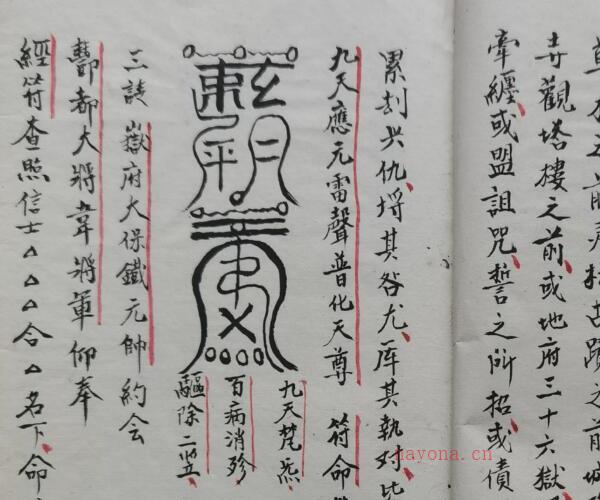 草木之前
寺觀塔樓之前或地府三十六獄
牽纏或盟詛咒誓之所招或債
累刦共仇埓其咎尤庠其執對比
九天應元雷聲普化天尊 符命
九天梵炁
百病消殄
驅除二竪
三誥嶽府大保鐵元帥約会
酆都大將韋將軍仰奉
經符查照信士△△△合△名下命
nayona.cn